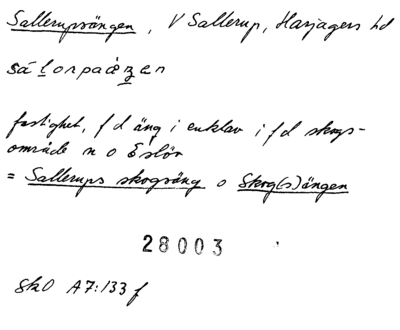 Sallerupsängen, V Sallerup, Harjagers hd
fastighet, f d äng i enklav i f d skogs-
område n o Eslöv
= Sallerups skogsäng o Skog(s)ängen
28003
SkO A7:133 f